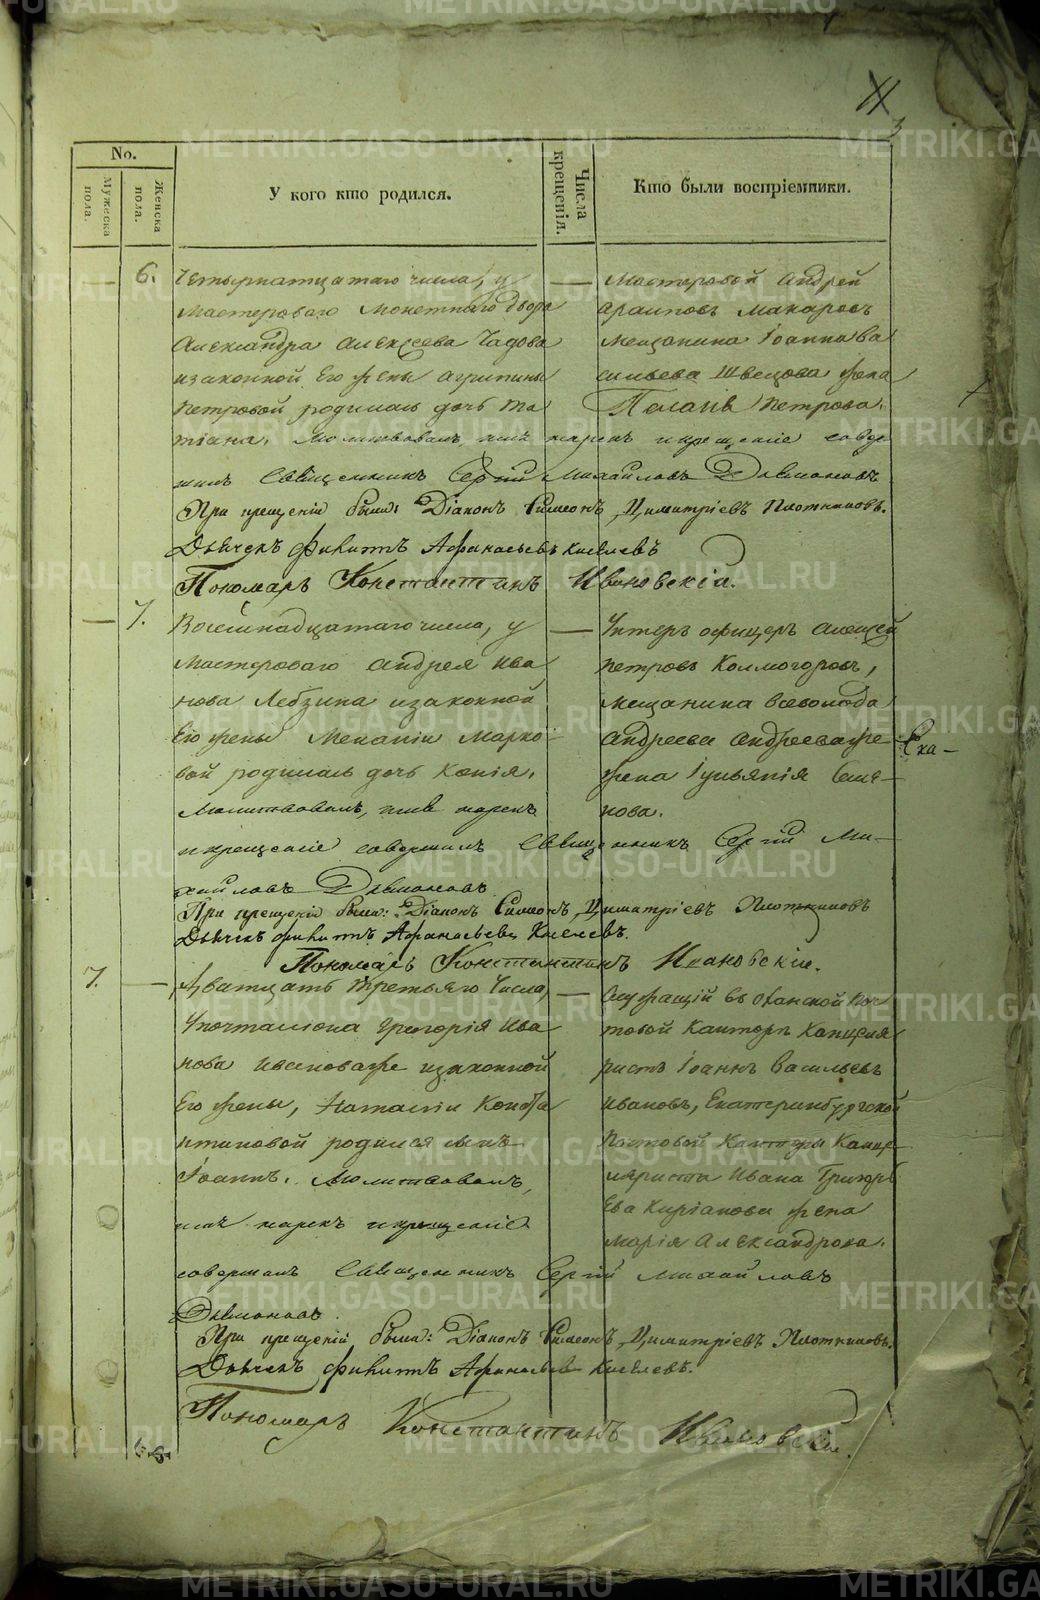 3
No.
Мужеска пола.
Женска пола.
У кого кто родился.
Числа крещенія.
Кто были воспріемники.
6.
Четырнатцатаго числа, у
Мастероваго Монетнаго двора
Александра Алексеева Чадова
изаконной Его жены Агрипины
Петровой родилась дочь Та
тіана. Молитвовалъ, имя нарекъ и крещеніе совер
шилъ Священникъ Сергій Михайловъ
При крещеніи были: Діаконъ Симеонъ Димитріевъ Плотниковъ.
Дьячекъ Филиппъ Афанасьевъ Киселевъ
Пономарь Константинъ Ивановскій.
Мастеровой Андрей
Араповъ Макаровъ
Мещанина Іоанна Ва
сильева Швецова жена
Петрова.
7.
Восемнадцатаго числа, у
Мастероваго Андрея Ива
нова Лебзина изаконной
Его жены Меланіи Марко
вой родилась дочь Ксенія.
Молитвовалъ, имя нарекъ
и крещеніе совершилъ Священникъ Сергій Ми
хайловъ
При крещеніи были: Діаконъ Симеонъ Димитріевъ Плотниковъ
Дьячекъ Филиппъ Афанасьевъ Киселевъ.
Пономарь Константинъ Ивановскій.
Унтеръ офицеръ Алексей
Петровъ Колмогоровъ,
мещанина Всеволода
Андреева Андреева же
жена Іульянія Симо
нова.
7.
Дватцать третьяго Числа,
Упочталіона Григорія Ива
нова Иванова же изаконной
Его жены, Наталіи Конста
нтиновой родился сынъ
Іоаннъ. Молитвовалъ,
имя нарекъ и крещеніе
совершилъ Священникъ Сергій Михайловъ
При крещеніи были: Діаконъ Симеонъ Димитріевъ Плотниковъ.
Дьячекъ Филиппъ Афанасьевъ Киселевъ.
Пономарь Константинъ Ивановскій.
Служащій въ Оханской поч
товой Канторе Канцеля
ристъ Іоаннъ Васильевъ
Ивановъ, Екатеринбургской
Почтовой Канторы Канце
ляриста Ивана Григорь
Ева Киріанова жена
Марія Александрова.
METRIKI.GASO-URAL.RU